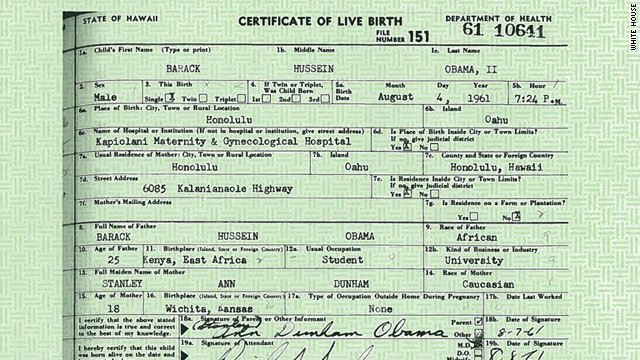 WHITE HOUSE
STATE OF HAWAII CERTIFICATE OF LIVE BIRTH DEPARTMENT OF HEALTH
FILE NUMBER 151 61 10641
1a. Child's First Name (Type or print) 1b. Middle Name 1c. Last Name
BARACK HUSSEIN OBAMA, II
2. Sex 3. This Birth 4. If Twin or Triplet, Was Child Born 5a. Birth Date Month Day Year 5b. Hour
Male Single X Twin Triplet 1st 2nd 3rd August 4, 1961 7:24 P.M.
6a. Place of Birth: City, Town or Rural Location 6b. Island
Honolulu Oahu
6c. Name of Hospital or Institution (If not in hospital or institution, give street address) 6d. Is Place of Birth Inside City or Town Limits? If no, give judicial district
Kapiolani Maternity & Gynecological Hospital Yes X No
7a. Usual Residence of Mother: City, Town or Rural Location 7b. Island 7c. County and State or Foreign Country
Honolulu Oahu Honolulu, Hawaii
7d. Street Address 7e. Is Residence Inside City or Town Limits? If no, give judicial district
6085 Kalanianaole Highway Yes X No
7f. Mother's Mailing Address 7g. Is Residence on a Farm or Plantation?
Yes No X
8. Full Name of Father 9. Race of Father
BARACK HUSSEIN OBAMA African
10. Age of Father 11. Birthplace (Island, State or Foreign Country) 12a. Usual Occupation 12b. Kind of Business or Industry
25 Kenya, East Africa Student University
13. Full Maiden Name of Mother 14. Race of Mother
STANLEY ANN DUNHAM Caucasian
15. Age of Mother 16. Birthplace (Island, State or Foreign Country) 17a. Type of Occupation Outside Home During Pregnancy 17b. Date Last Worked
18 Wichita, Kansas None
I certify that the above stated information is true and correct to the best of my knowledge. 18a. Signature of Parent or Other Informant Parent Other 18b. Date of Signature
(Stanley) Ann Dunham Obama 8-7-61
I hereby certify that this child was born alive on the date and 19a. Signature of Attendant M.D. 19b. Date of Signature